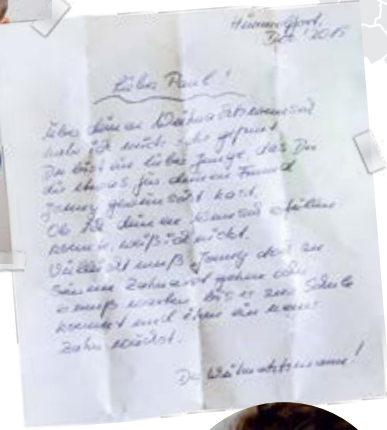 Himmelpfort,
Dez. 2015
Lieber Paul!
Über deinen Weihnachtswunsch
habe ich mich sehr gefreut
Du bist ein lieber Junge, das Du
dir etwas für deinen Freund
gewünscht hast.
Ob ich deinen Wunsch erfüllen
kann, weiß ich nicht.
Vielleicht muß Jonny doch zu
seinem Zahnarzt gehen oder
muß warten bis er zur Schule
kommt und ihm ein neuer
Zahn wächst.
Der Weihnachtsmann!